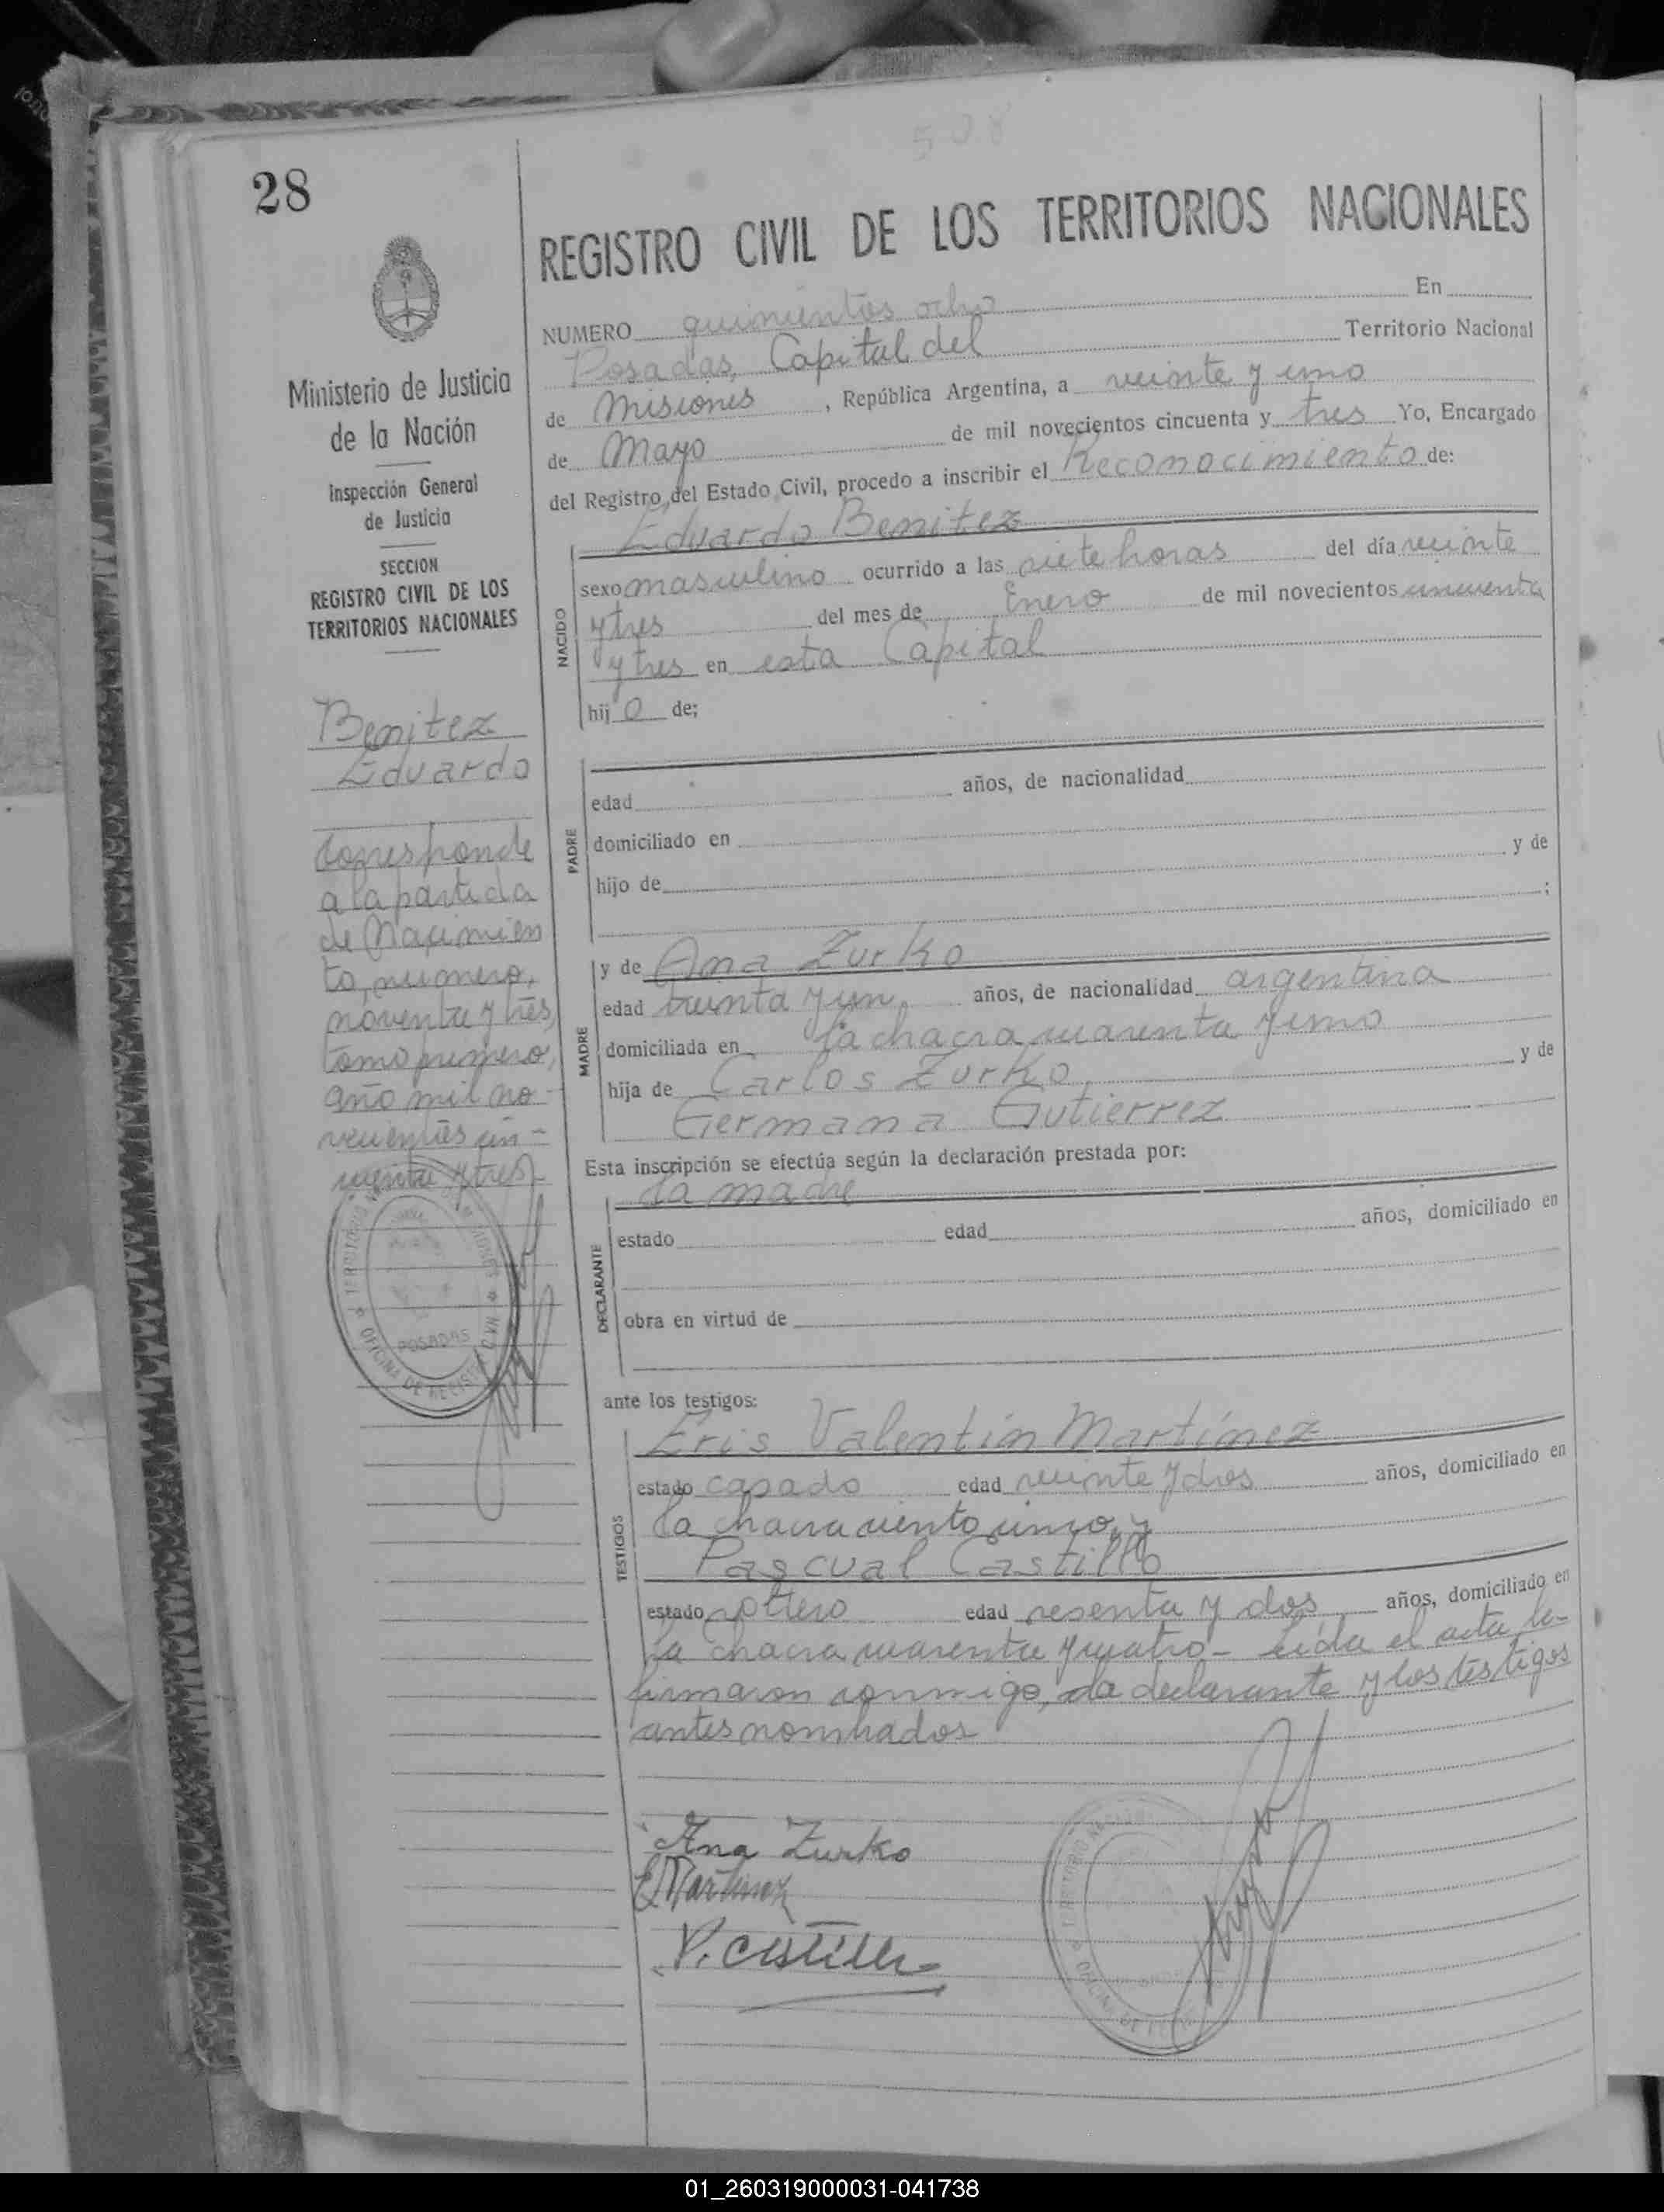 508
28
REGISTRO CIVIL DE LOS TERRITORIOS NACIONALES
NUMERO quinientos ocho En
Posadas, Capital del Territorio Nacional
de Misiones, República Argentina, a veinte y uno
de Mayo de mil novecientos cincuenta y tres Yo, Encargado
del Registro del Estado Civil, procedo a inscribir el Reconocimiento de:
Ministerio de Justicia
de la Nación
Inspección General
de Justicia
SECCION
REGISTRO CIVIL DE LOS
TERRITORIOS NACIONALES
Benitez
Eduardo
Corresponde
a la partida
de Nacimien
to, numero,
noventa y tres,
tomo primero,
año mil no-
vecientos cin-
cuenta y tres-
POSADAS
NACIDO
Eduardo Benitez
sexo masculino ocurrido a las siete horas del día veinte
y tres del mes de Enero de mil novecientos cincuenta
y tres en esta Capital
hijo de;
PADRE
edad años, de nacionalidad
domiciliado en
hijo de y de
;
MADRE
y de Ana Zurko
edad treinta y un, años, de nacionalidad argentina
domiciliada en la chacra cuarenta y uno
hija de Carlos Zurko, y de
Germana Gutierrez
Esta inscripción se efectúa según la declaración prestada por:
DECLARANTE
la madre
estado edad años, domiciliado en
obra en virtud de
ante los testigos:
TESTIGOS
Eris Valentin Martinez
estado casado edad veinte y dos años, domiciliado en
la chacra ciento uno, y
Pascual Castillo
estado soltero edad sesenta y dos, años, domiciliado en
la chacra cuarenta y cuatro- Leida el acta la-
firmaron conmigo, la declarante y los testigos
antes nombrados
Ana Zurko
E Martinez
P. Castillo
01_260319000031-041738